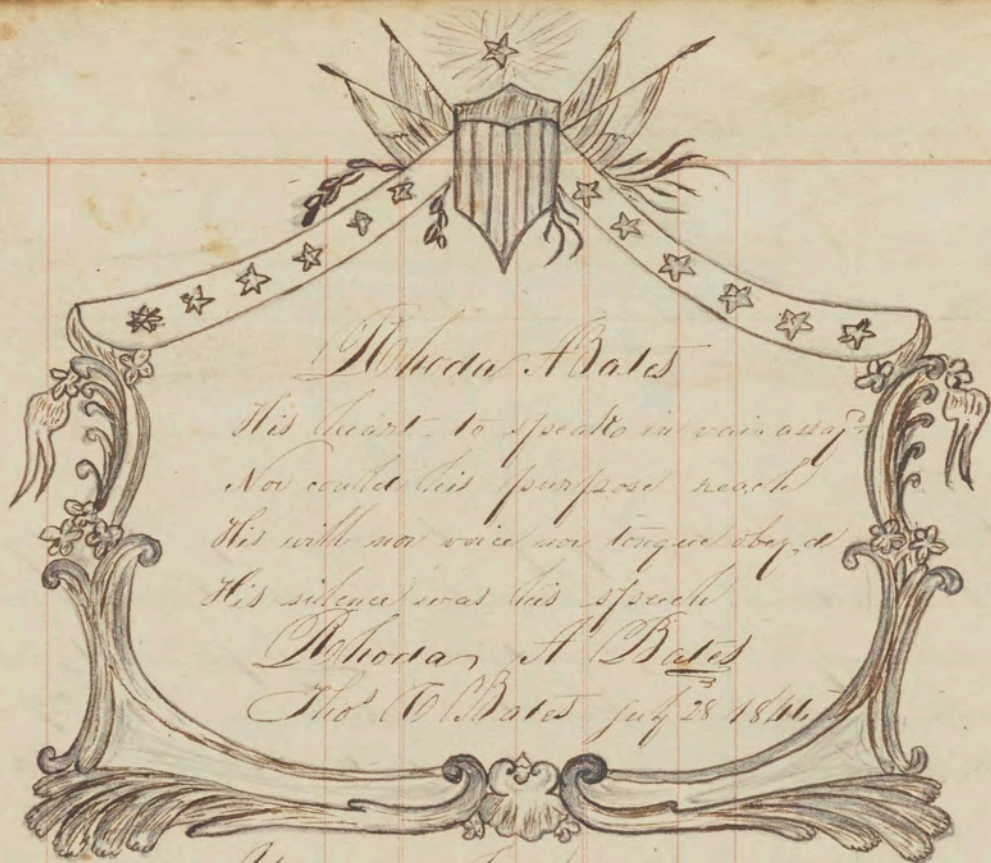 Rhoda A Bates
His heart to speak in vain assay'd
Nor could his purpose reach
His will nor voice nor tongue obey,d
His silence was his speech
Rhoda A Bates
Tho Bates July 28